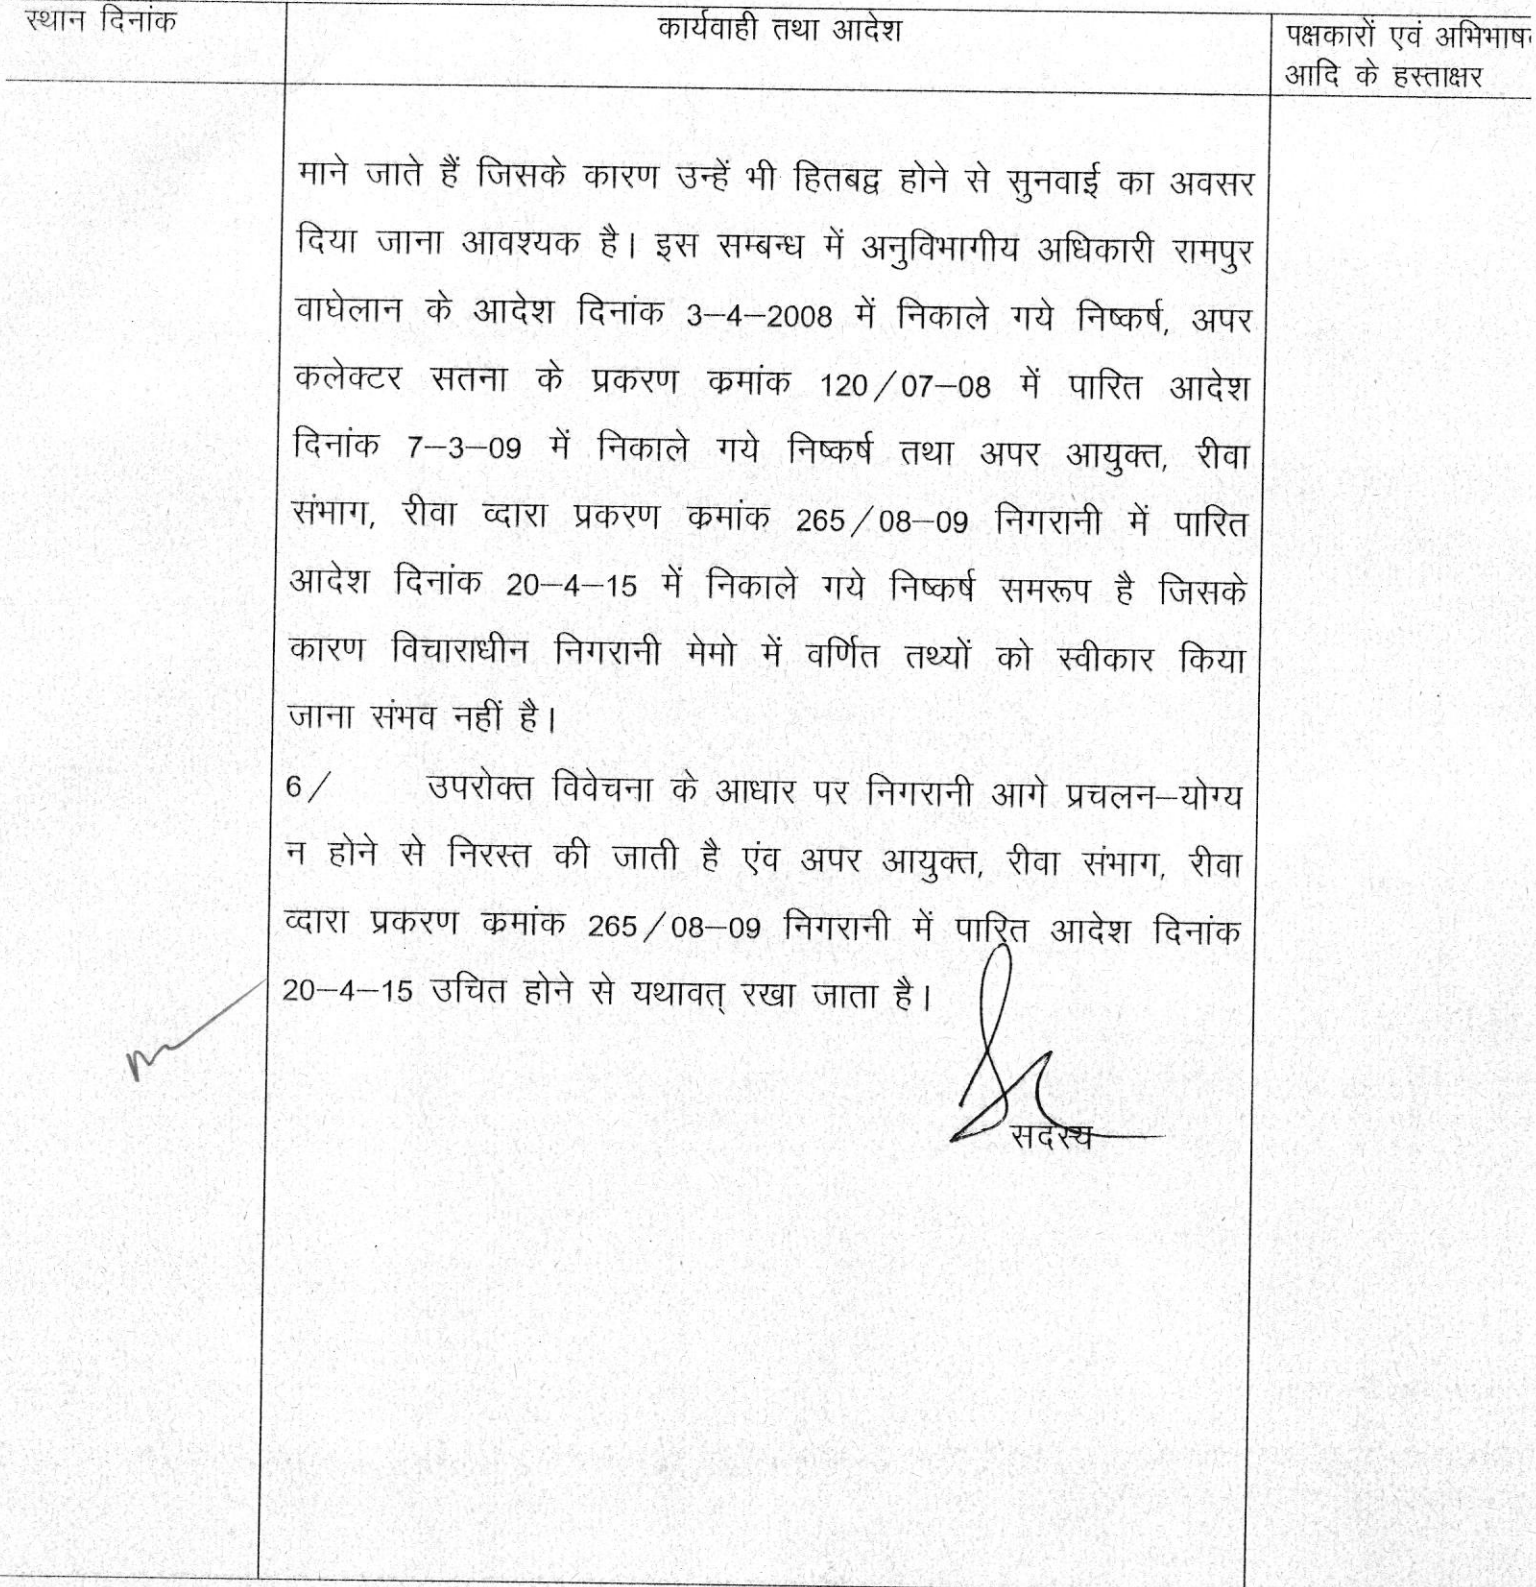 स्थान दिनांक
कार्यवाही तथा आदेश
पक्षकारों एवं
आदि के हस्ताक्षर
माने जाते हैं जिसके कारण उन्हें भी हितबद्व होने से सुनवाई का अवसर
दिया जाना आवश्यक है। इस सम्बन्ध में अनुविभागीय अधिकारी रामपुर
वाघेलान के आदेश दिनांक 3–4–2008 में निकाले गये निष्कर्ष, अपर
कलेक्टर सतना के प्रकरण कमांक 120/07–08 में पारित आदेश
दिनांक 7–3–09 में निकाले गये निष्कर्ष तथा अपर आयुक्त, रीवा
संभाग, रीवा व्दारा प्रकरण कमांक 265/08–09 निगरानी में पारित
आदेश दिनांक 20–4–15 में निकाले गये निष्कर्ष समरूप है जिसके
कारण विचाराधीन निगरानी मेमो में वर्णित तथ्यों को स्वीकार किया
जाना संभव नहीं है।
6/ उपरोक्त विवेचना के आधार पर निगरानी आगे प्रचलन–योग्य
न होने से निरस्त की जाती है एंव अपर आयुक्त, रीवा संभाग, रीवा
व्दारा प्रकरण कमांक 265/08–09 निगरानी में पारित आदेश दिनांक
20–4–15 उचित होने से यथावत् रखा जाता है।
सदस्य